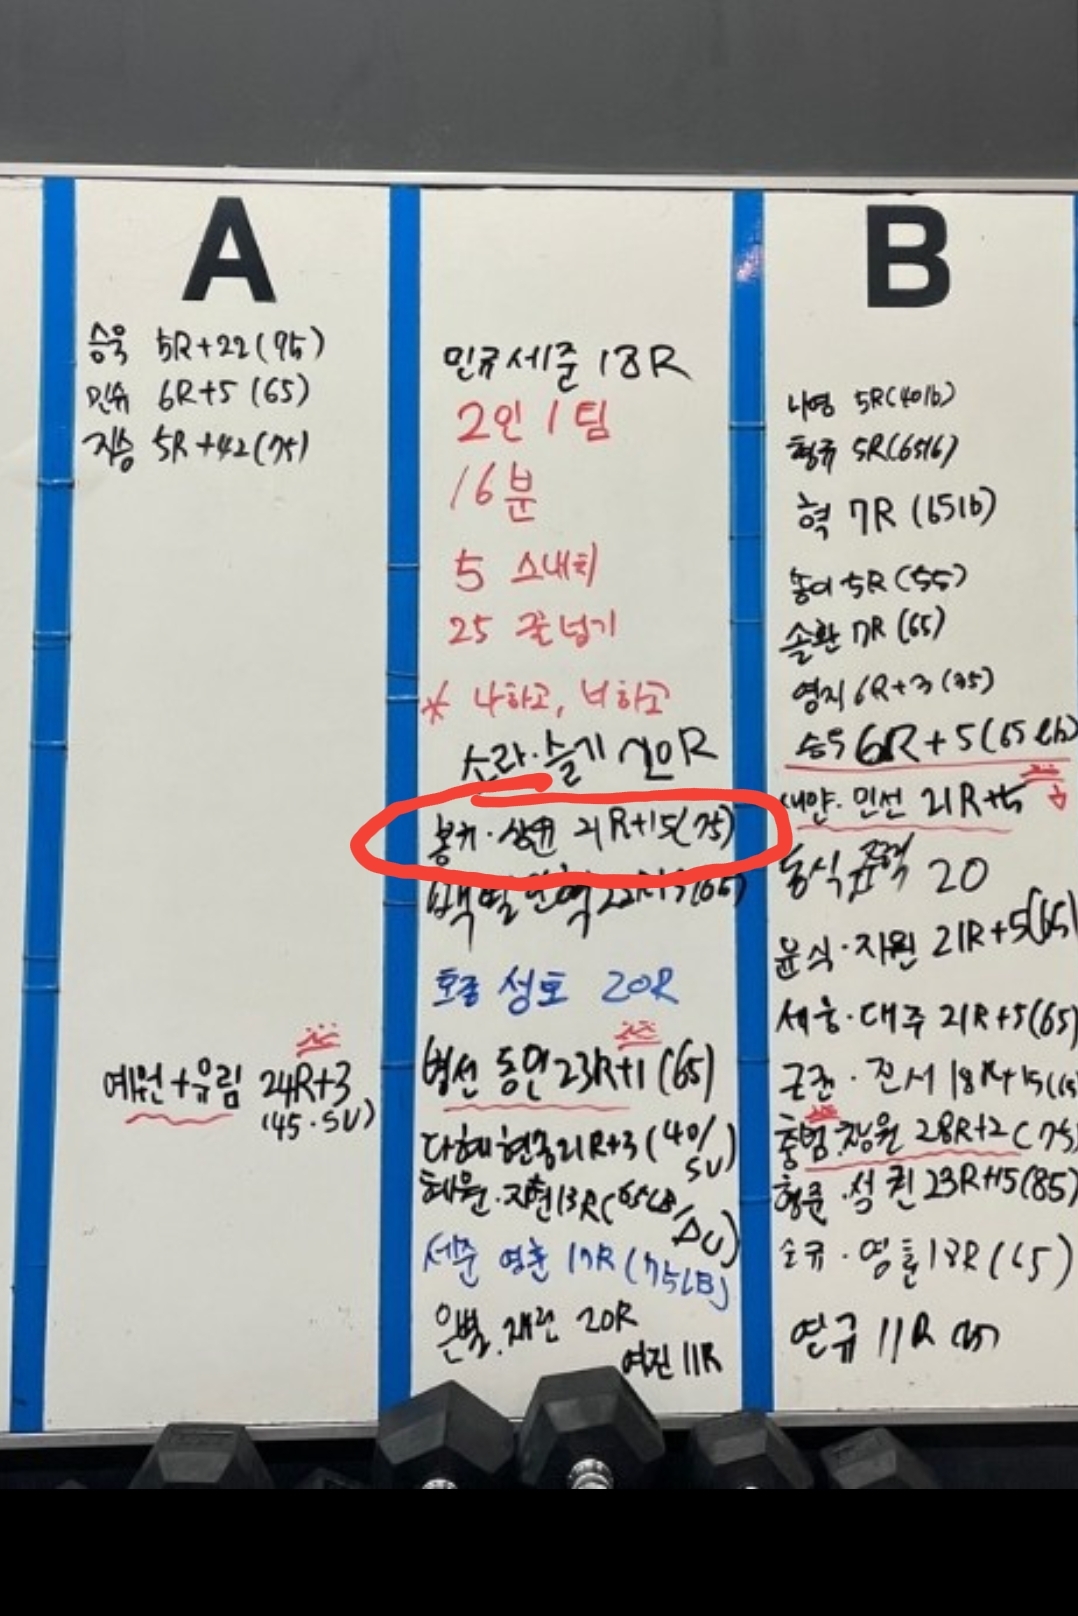 A
승욱 5R+22(95)
민슈 6R+5 (65)
지승 5R+42(75)
예원+유림 24R+3
(45·SU)
민규세준 18R
2인 1팀
16분
5 스내치
25 줄넘기
* 나하고, 너하고
소라·슬기 20R
21R+15(75)
호중 성호 20R
병선 동연 23R+1 (65)
다혜 현중 21R+3 (40/
SU)
혜원·지현 13R(65LB/
DU)
세준 영훈 17R (75LB)
은별. 20R
여진 11R
B
나영 5R(40lb)
형규 5R(65lb)
혁 7R (65lb)
송이 5R (55)
솔환 7R (65)
영지 6R+3 (35)
승우 6R+5(65lb)
민선 21R+5
동식 준혁 20
윤식·지원 21R+5(65)
세웅·대주 21R+5(65)
18R+15(65
충범.창원 28R+2(75)
형준·석진 23R+15(85)
영훈 18R(65)
연규 11R